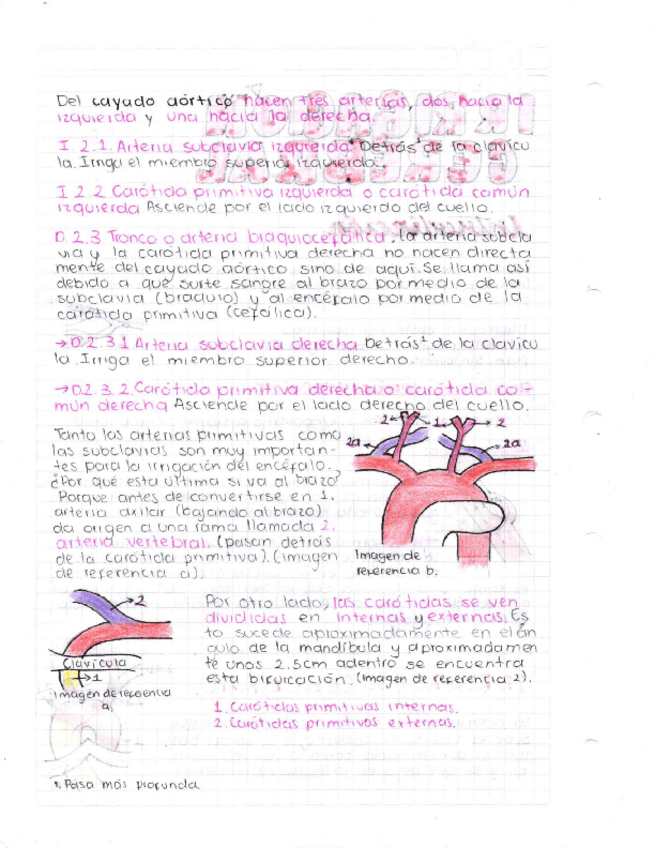 Del cayado aórtico nacen tres arterias, dos hacia la
izquierda y una hacia la derecha.
I 2.1. Arteria subclavia izquierda¹ Detrás de la clavicu
la. Irriga el miembro superior izquierdo.
I 2.2 Carótida primitiva izquierda o carótida común
izquierda Asciende por el lado izquierdo del cuello.
D. 2.3 Tronco o arteria braquiocefálica, la arteria subcla
via y la carótida primitiva derecha no nacen directa
mente del cayado aórtico sino de aquí. Se llama así
debido a que surte sangre al brazo por medio de la
subclavia (braquio) y al encéfalo por medio de la
carótida primitiva (cefálica).
→D.2.3.1 Arteria subclavia derecha Detrás¹ de la clavicu
la. Irriga el miembro superior derecho.
→D2.3.2. Carótida primitiva derecha o carótida co-
mún derecha Asciende por el lado derecho del cuello.
Tanto las arterias primitivas como
las subclavias son muy importan-
tes para la irrigación del encéfalo.
¿Por qué esta última si va al brazo?
Porque antes de convertirse en 1.
arteria axilar (bajando al brazo)
da origen a una rama llamada 2.
arteria vertebral. (pasan detrás
de la carótida primitiva). (imagen
de referencia a).
2 1 2
2a 2a
Imagen de
referencia b.
2
Clavícula
1
Imagen de referencia
a.
Por otro lado, las carótidas se ven
divididas en internas y externas. Es
to sucede aproximadamente en el án
gulo de la mandíbula y aproximadamen
te unos 2.5cm adentro se encuentra
esta bifurcación. (Imagen de referencia 2).
1. Carótidas primitivas internas.
2. Carótidas primitivas externas.
1. Pasa más profunda.